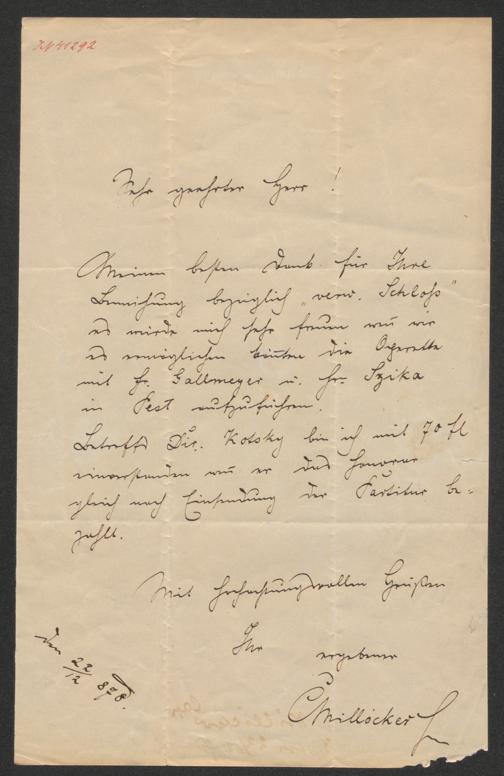 IN 41292
Sehr geehrter Herr!
Meinen besten Dank für Ihre
Bemühung bezüglich „verw. Schloß"
es würde mich sehr freuen weñ wir
es ermöglichen köñten die Operette
mit Fr. Gallmeyer u. Hr. Szika
in Pest aufzuführen.
Betreffs Dir. Kotsky bin ich mit 70 fl
einverstanden weñ er das Honorar
gleich nach Einsendung der Partitur be-
zahlt.
Mit hochachtungsvollen Grüßen
Ihr
ergebener
CMillöcker
den 22/12 878.